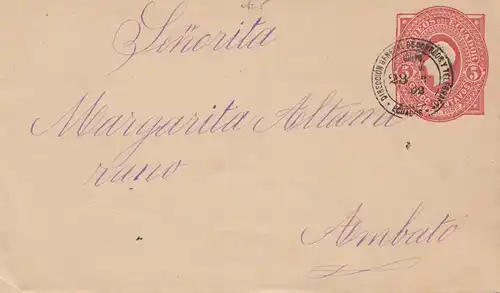 Señorita
Margarita Altami
rano
Ambato
DIRECCION GENERAL DE CORREOS Y TELEGRAFOS
23
92
ECUADOR
5
5
ECUADOR